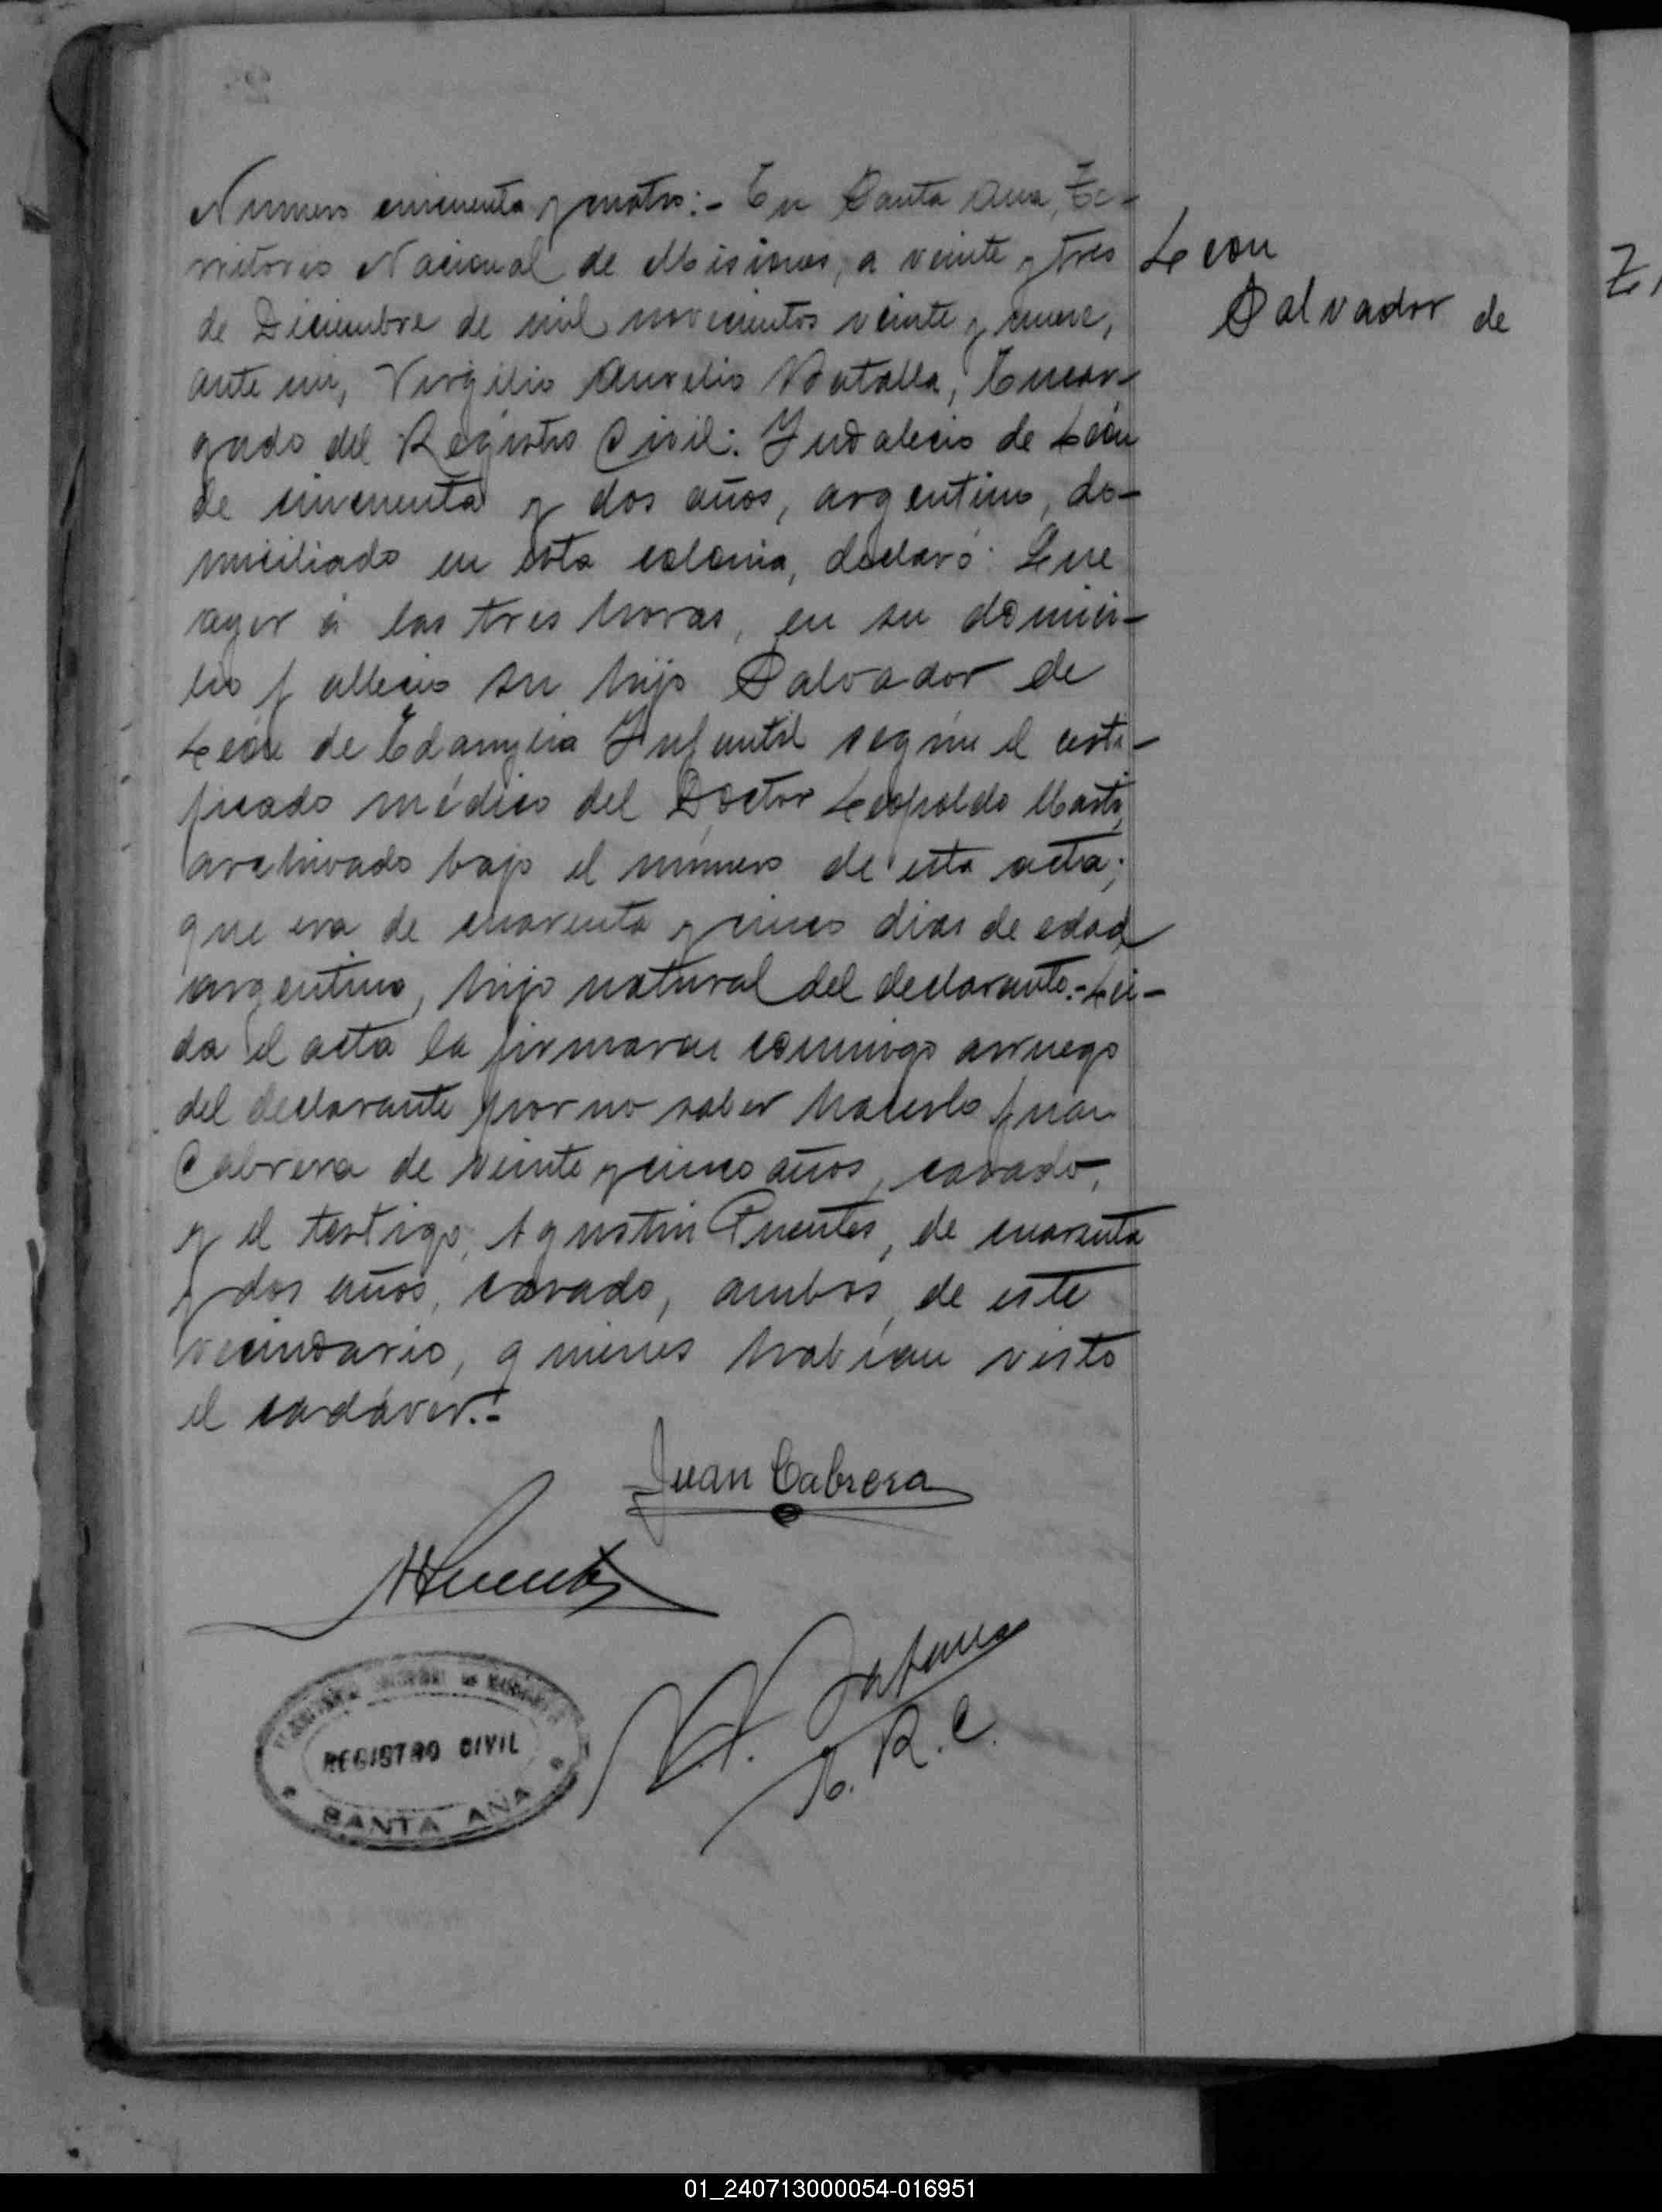 Numero cincuenta y cuatro:- En Santa Ana, Te-
rritorio Nacional de Misiones, a veinte y tres
de Diciembre de mil novecientos veinte y nueve,
ante mi, Virgilio Aurelio Batalla, Encar-
gado del Registro Civil: Indalecio de León
de cincuenta y dos años, argentino, do-
miciliado en esta colonia, declaró: Que
ayer á las tres horas, en su domici-
lio fallecio su hijo Salvador de
León de Infantil según el certi-
ficado médico del Doctor Leopoldo
archivado bajo el número de esta acta;
que era de cuarenta y cinco dias de edad
argentino, hijo natural del declarante.- Leí-
da el acta la firmaron conmigo arruego
del declarante por no saber hacerlo Juan
Cabrera de veinte y cinco años, casado,
y el testigo, Agustin Puentes, de cuarenta
y dos años, casado, ambos, de este
vecindario, quienes habían visto
el cadáver.-
Leon
Salvador de
Juan Cabrera
APuentes
E. R. C.
REGISTRO CIVIL
SANTA ANA
01_240713000054-016951